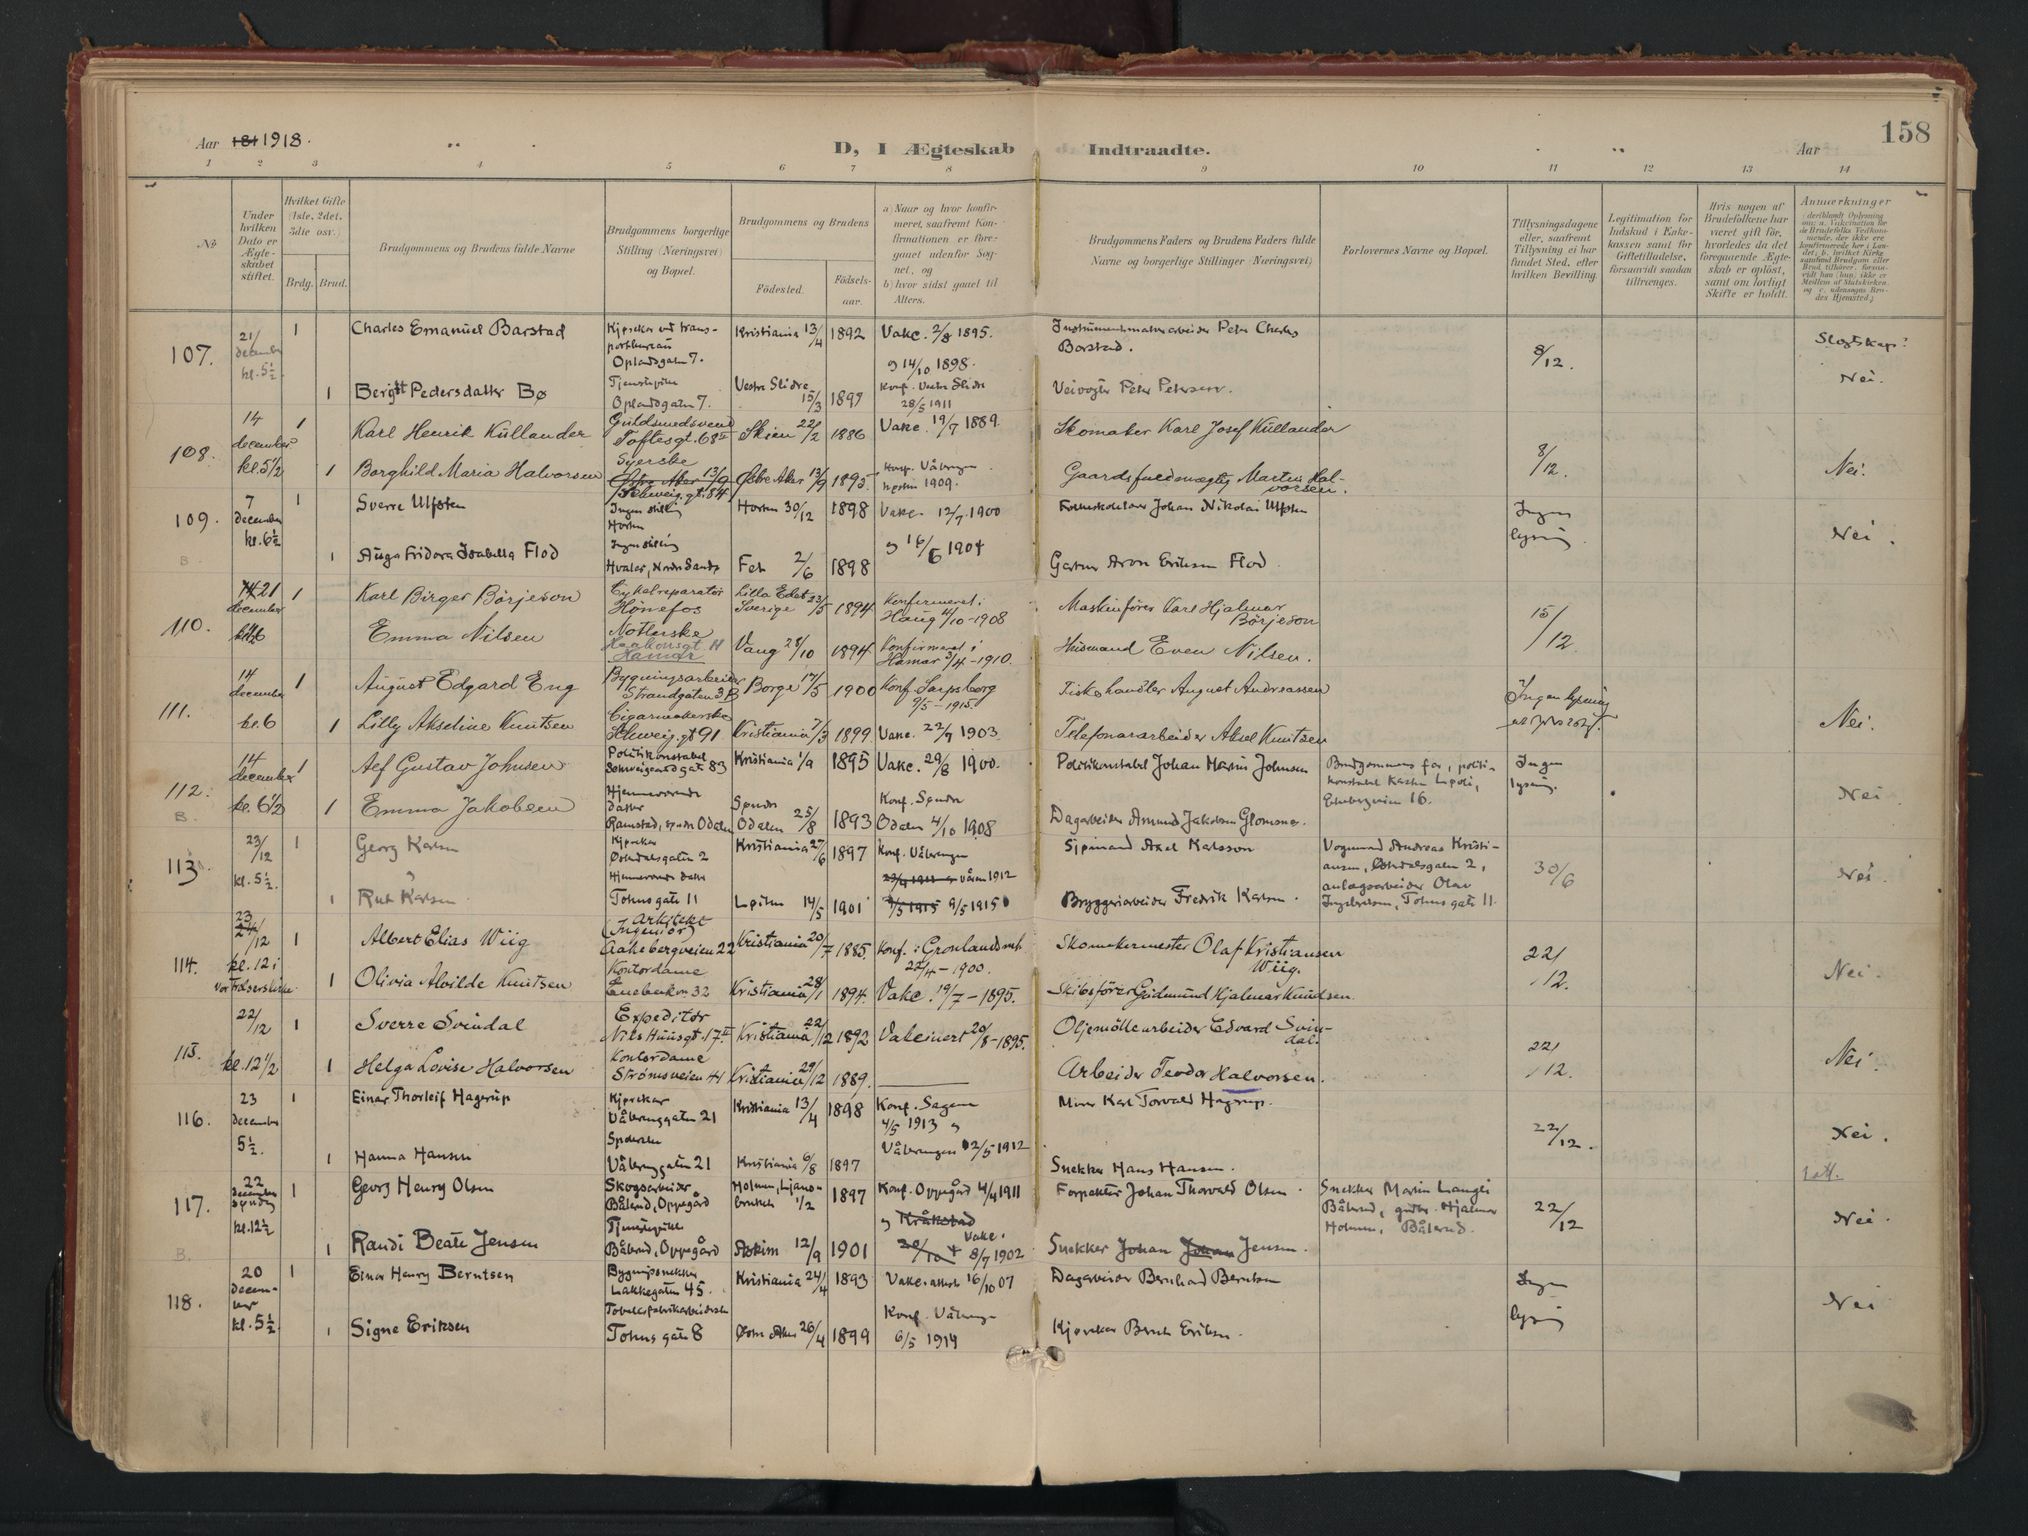 158
Aar 181 1918.
D, I Ægteskab Indtraadte.
Aar
1 2 3 4 5 6 7 8 9 10 11 12 13 14
No
Under hvilken Dato er Ægteskabet stiftet.
Hvilket Gifte (1ste, 2det, 3die osv.)
Brdg. Brud.
Brudgommens og Brudens fulde Navne
Brudgommens borgerlige Stilling (Næringsvei) og Bopæl.
Brudgommens og Brudens
Fødested.
Fødselsaar.
a) Naar og hvor konfirmeret, saafremt Konfirmationen er foregaaet udenfor Sognet, og
b) hvor sidst gaaet til Alters.
Brudgommens Faders og Brudens Faders fulde Navne og borgerlige Stillinger (Næringsvei)
Forlovernes Navne og Bopæl.
Tillysningsdagene eller, saafremt Tillysning ei har fundet Sted, efter hvilken Bevilling.
Legitimation for Indskud i Enkekassen samt for Giftetilladelse, forsaavidt saadan tiltrænges.
Hvis nogen af Brudefolkene har været gift før, hvorledes da det foregaaende Ægteskab er opløst, samt om lovligt Skifte er holdt.
Anmærkninger
107. 21/ december kl. 5½
1 Charles Emanuel Barstad
Oplandsgaten 7.
Kristiania 13/4 1892
Vakc. 2/8 1895.
14/10 1898.
Instrumentmakerarbeider Peter Charles Barstad.
8/12.
Nei.
1 Pedersdatter Bø
Tjenestepike Oplandsgaten 7.
Vestre Slidre 15/3 1897
Konf. Vestre Slidre 28/5 1911
Veivogter Peter Petersen.
108. 14 december kl. 5½
1 Karl Henrik Kullander
Guldsmedsvend Toftesgt. 68 II
Skien 22/2 1886
Vakc. 19/7 1889.
Skomaker Karl Josef Kullander
8/12.
Nei.
1 Borghild Maria Halvorsen
Syerske
Østre Aker 13/9
Schweig. gt. 84
Østre Aker 13/9 1895.
Konf. Vålerengen høsten 1909.
Gaardsfuldmægtig Martin Halvorsen.
109. 7 december kl. 6½
1 Sverre Ulfsten
Ingen stilling Horten
Horten 30/12 1898
Vakc. 12/7 1900
Johan Nikolai Ulfsten
Ingen lysning.
Nei.
B. 1 Auga Fridora Isabella Flod
Ingen stilling
Hvaler, Nordre Sandø
Fet 2/6 1898
16/6 1904
Gartner Aron Eriksen Flod.
110. 21 december
1 Karl Birger Börjeson
Cykelreparatør Hønefos
Lilla Edet Sverige 23/5 1894
Konfirmeret i Haug 4/10-1908
Maskinfører Karl Hjalmar Börjeson
15/12
Emma Nilsen
Haakonsgt. 11 Hamar
Vang 28/10 1894
Konfirmeret i Hamar 3/4-1910.
Husmand Even Nilsen.
111. 14 december kl. 6
1 August Edgard Eng
Bygningsarbeider Strandgaten 3 B
Borge 17/5 1900
Konf. Sarpsborg 9/5-1915.
Fiskehandler August Andreassen
Ingen lysning
Nei.
1 Lilly Akseline Knutsen
Cigarmakerske Schweig. gt 91
Kristiania 7/3 1899
Vakc. 22/7 1903
Telefonarbeider Aksel Knutsen
112. 14 december kl. 6½
1 Gustav Johnsen
Politikonstabel Schweigaardgate 83
Kristiania 1/9 1895
Vakc. 29/8 1900.
Politikonstabel Johan Martin Johnsen
Brudgommens far, politikonstabel
Ekebergveien 16.
Ingen lysning.
Nei
B. 1 Emma Jakobsen
Hjemmeværende datter
Ramstad, søndre Odalen
Søndre Odalen 25/8 1893
Konf. Søndre Odalen 4/10 1908
Dagarbeider Amund Jakobsen Glomsna.
113. 23/12 kl. 5½.
1 Georg Karlsen
Kjøreker Østdalsgaten 2
Kristiania 27/6 1897
Konf. Vålerengen
våren 1912
Sjømand Axel Karlsson
Vognmand Andreas Kristiansen, Østdalsgaten 2, anlægsarbeider Olav Ingebretsen, Tøhusgate 11
30/6
Nei.
1 Rut Karlsen
Hjemmeværende datter
Tøhusgate 11
Løiten 14/5 1901
9/5 1915
Bryggeriarbeider Fredrik Karlsen.
114. 23/12 kl. 12 i Vor Frelserskirke
1 Albert Elias Wiig
Arkitekt (Ingeniør)
Aakebergveien 22
Kristiania 20/7 1885.
Konf. i Grønlands
22/4-1900.
Skomakermester Olaf Kristiansen Wiig.
22/12.
Nei.
1 Olivia Alvilde Knutsen
Kontordame
Enebakvn 32
Kristiania 28/1 1894.
Vakc. 19/7-1895.
Skibsfører Gudmund Hjalmar Knudsen.
115. 22/12 kl. 12½
1 Sverre Svindal
Expeditør
Nils Huusgt. 17 II
Kristiania 22/12 1892
Vakcinert 20/8-1895.
Oljemöllearbeider Edvard Svindal.
22/12.
Nei.
1 Helga Lovise Halvorsen
Kontordame
Strømsveien 41
Kristiania 29/12 1889.
Arbeider Teodor Halvorsen.
116. 23 december 5½.
1 Einar Thorleif Hagerup
Kjøreker Vålerenggaten 21
Kristiania 13/4 1898
Konf. Sagene 4/5 1913
Murer Karl Torvald Hagerup.
22/12.
Nei.
1 Hanna Hansen
Vålerenggaten 21
Kristiania 6/8 1897
Vålerengen 12/5 1912
Snekker Hans Hansen.
117. 22 december søndag kl. 12½
1 Georg Henry Olsen
Skogsarbeider Bålerud, Oppegård
Holmen, Ljansbruket 1/2 1897
Konf. Oppegård 4/4 1911
Forpakter Johan Thorvald Olsen.
Snekker Martin
Bålerud, Hjalmar Holmen, Bålerud.
22/12
Nei.
B. 1 Randi Beate Jensen
Tjenestepike Bålerud, Oppegård
Askim 12/9 1901
Kråkstad
Vakc. 8/7 1902
Snekker Johan Johan Jensen.
118. 20 december kl. 5½
1 Einar Henry Berntsen
Bygningssnekker Lakkegaten 45.
Kristiania 24/4 1893
Vakc. attest 16/10 07
Dagarbeider Bernhard Berntsen
Ingen lysning
Nei
1 Signe Eriksen
Tobaksfabrikarbeiderske
Tøhusgate 8
Østre Aker 26/4 1899
Konf. Vålerengen 6/5 1914
Kjøreker Bernt Eriksen.